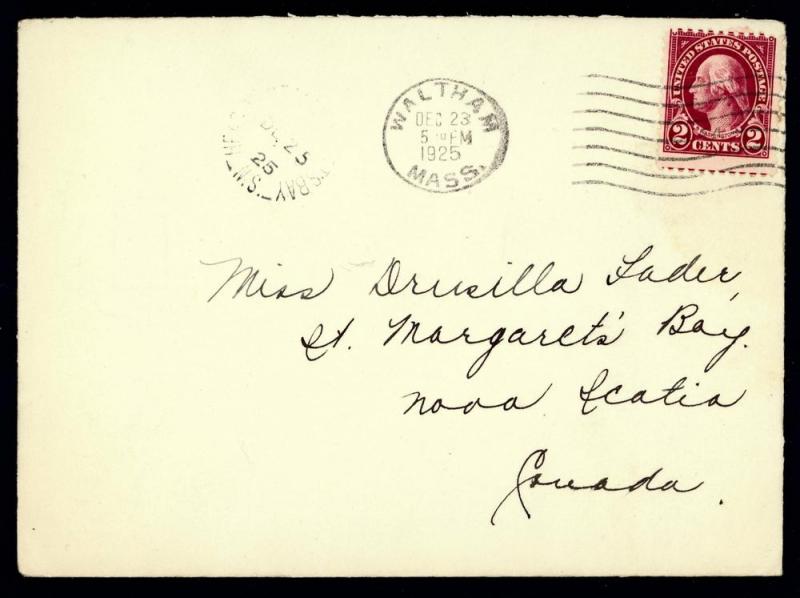 WALTHAM
DEC 23
5 PM
1925
MASS.
UNITED STATES POSTAGE
2 CENTS 2
25
25
Miss Drusilla Fader,
St. Margaret's Bay.
Nova Scotia
Canada.